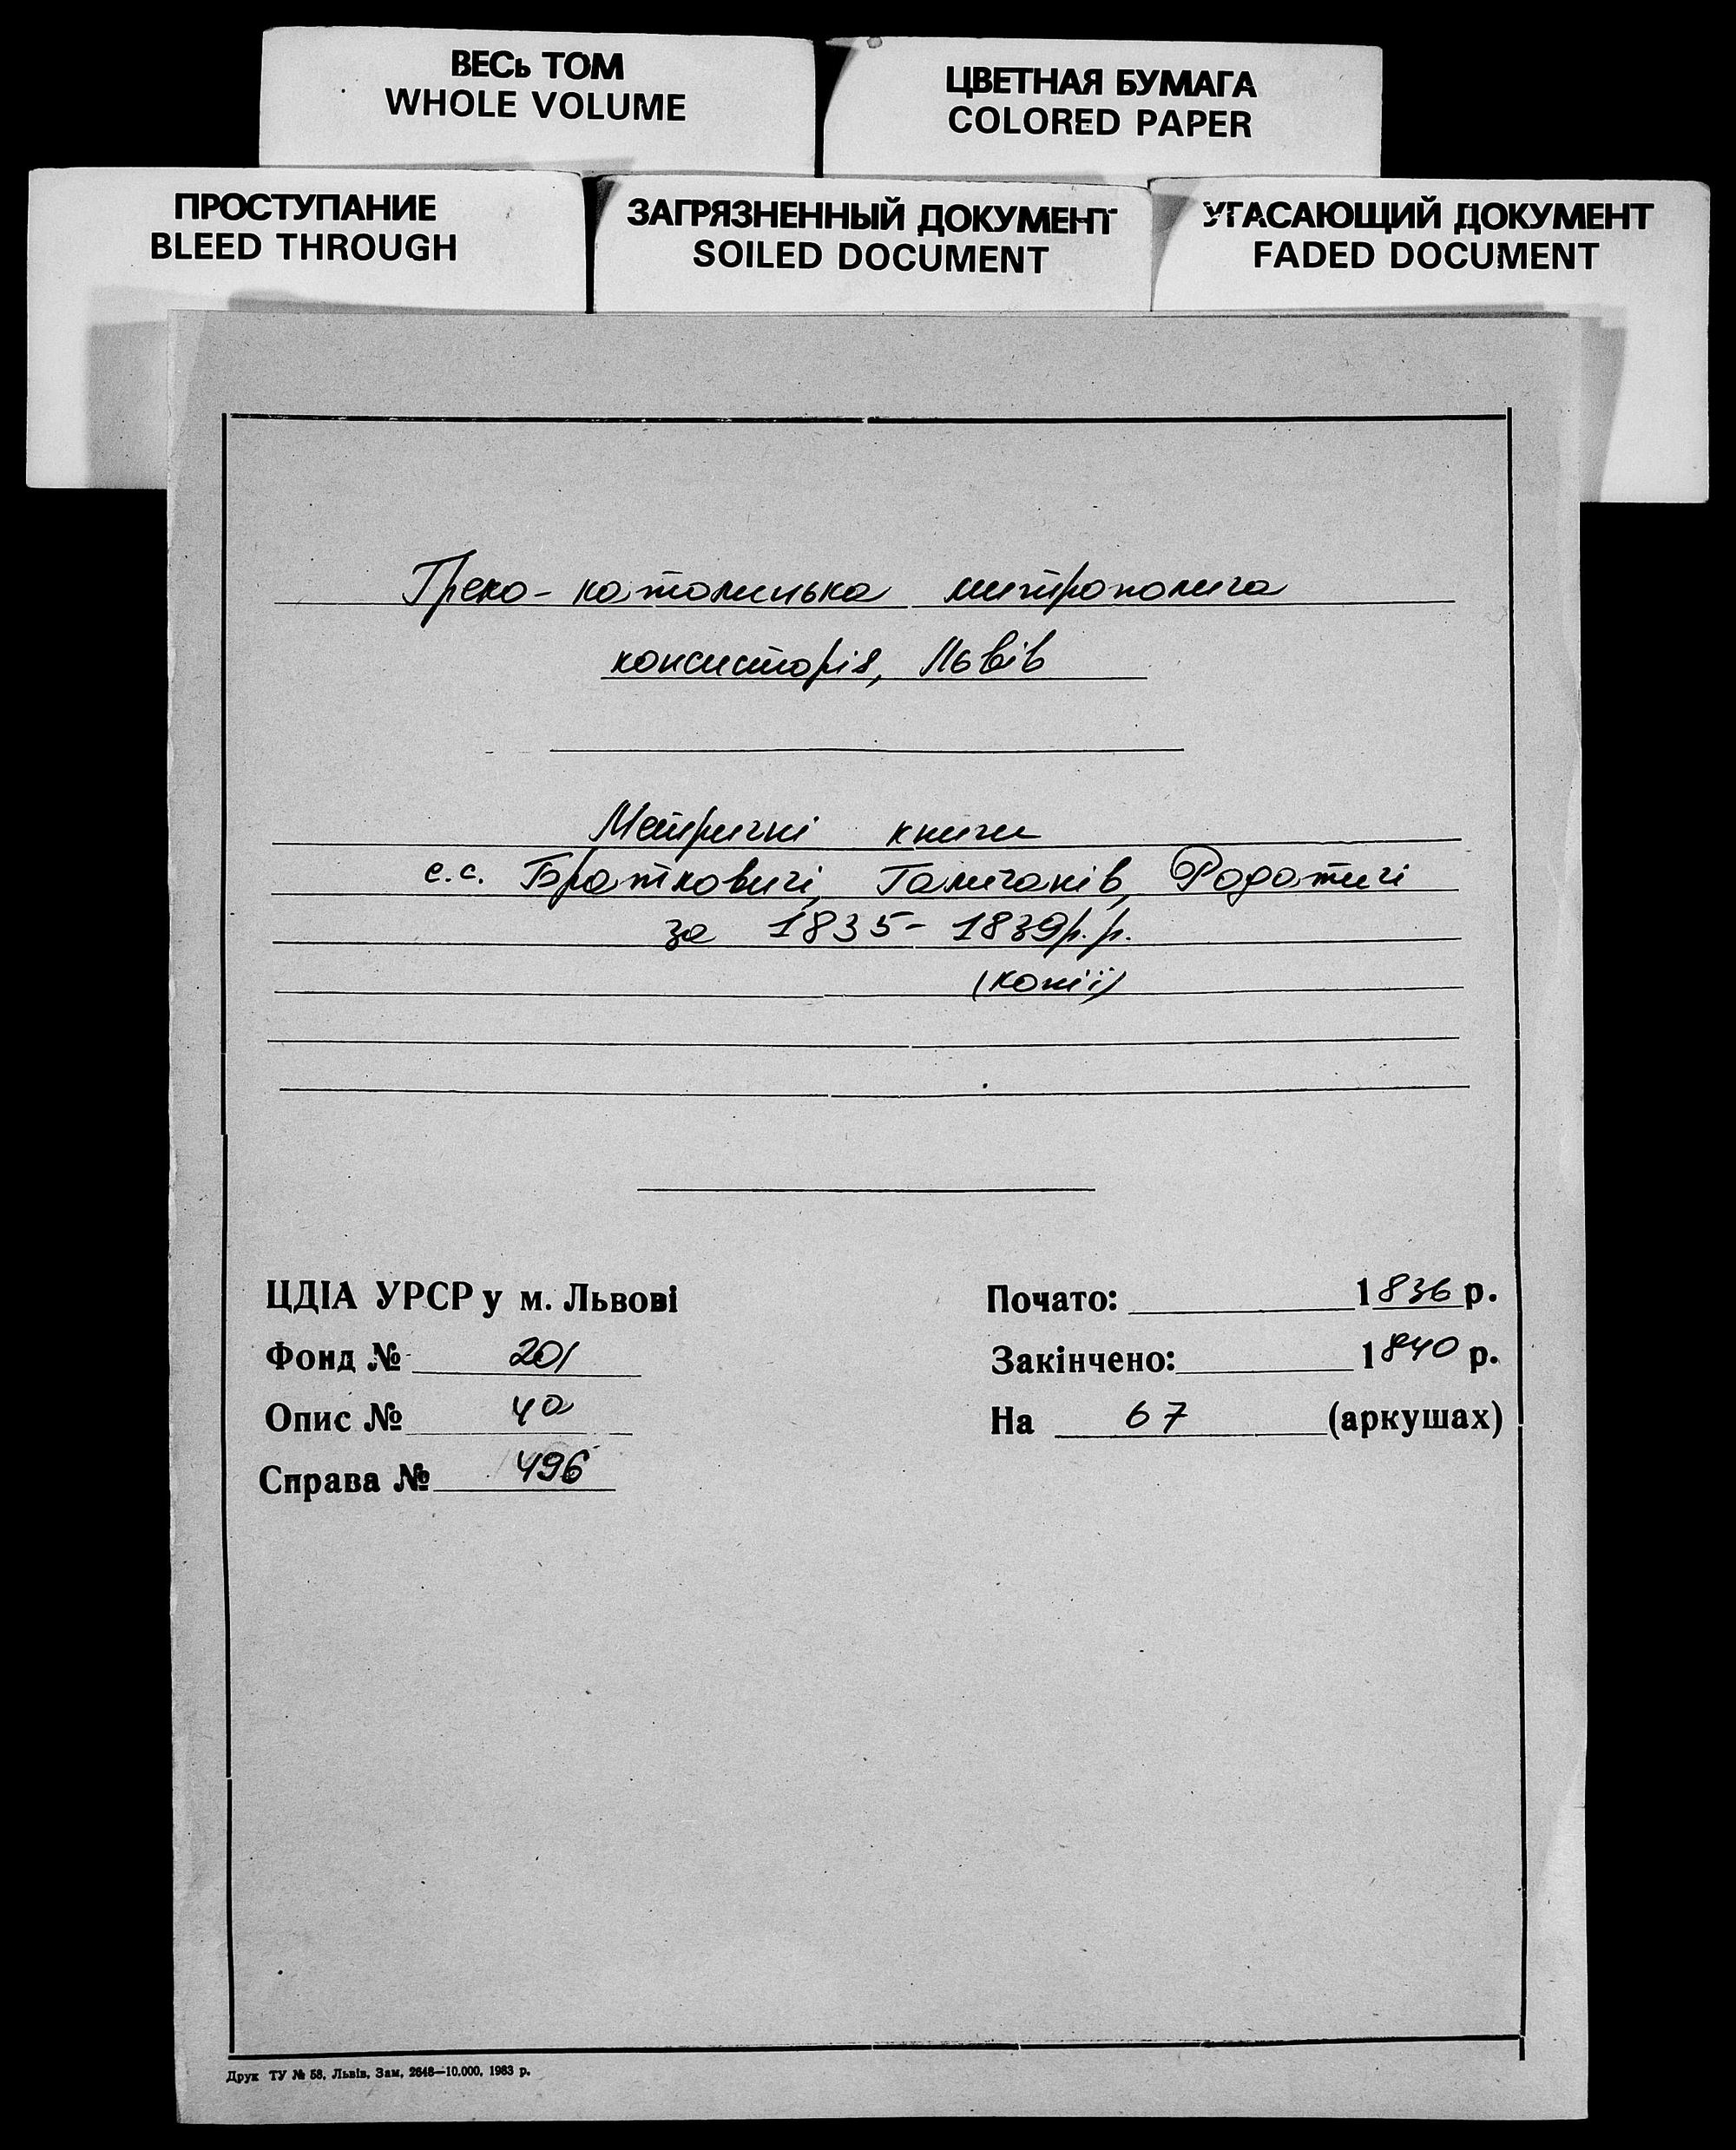 ВЕСЬ ТОМ
WHOLE VOLUME
ЦВЕТНАЯ БУМАГА
COLORED PAPER
ПРОСТУПАНИЕ
BLEED THROUGH
ЗАГРЯЗНЕННЫЙ ДОКУМЕНТ
SOILED DOCUMENT
УГАСАЮЩИЙ ДОКУМЕНТ
FADED DOCUMENT
Греко-католицька митрополича
консисторія, Львів
Метричні книги
с.с. Братковичі, Галичанів, Родатичі
за 1835-1839р.р.
(копії)
ЦДІА УРСР у м. Львові
Фонд № 201
Опис № 4а
Справа № 496
Почато: 1836 р.
Закінчено: 1840 р.
На 67 (аркушах)
Друк ТУ № 58, Львів, Зам. 2648—10.000, 1983 р.